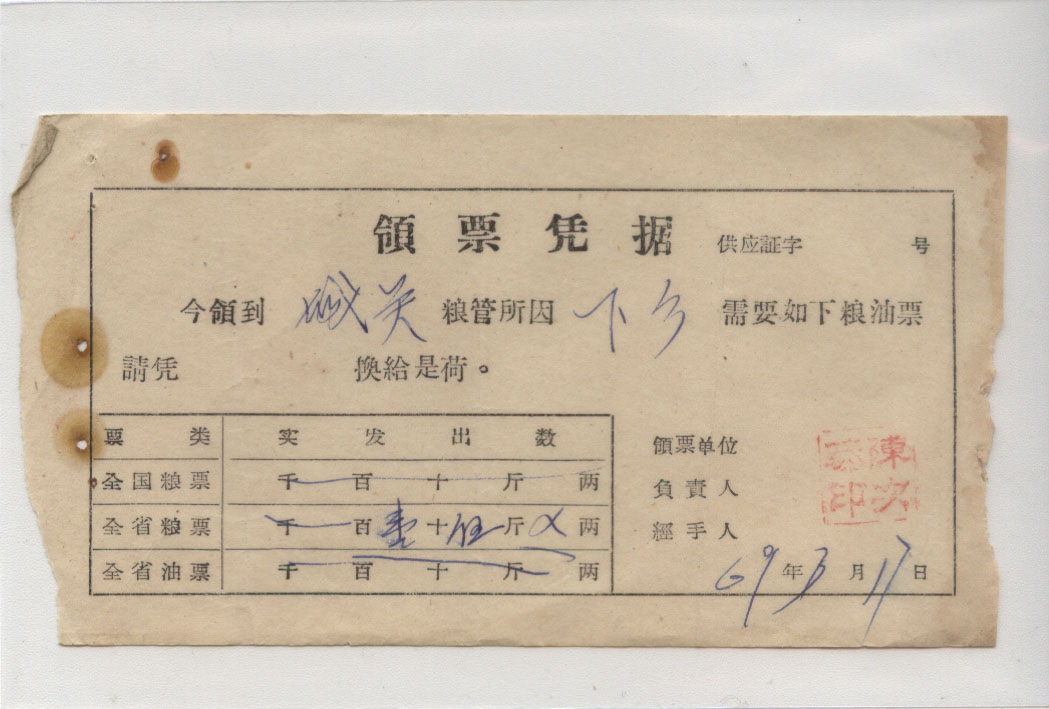 領票凭据 供应証字 号
今領到 碱关 粮管所因 下乡 需要如下粮油票
請凭 換給是荷。
票类 实发出数
全国粮票 千百十斤两
全省粮票 千百壹十伍斤〤两
全省油票 千百十斤两
領票单位
負責人
經手人
69年3月17日